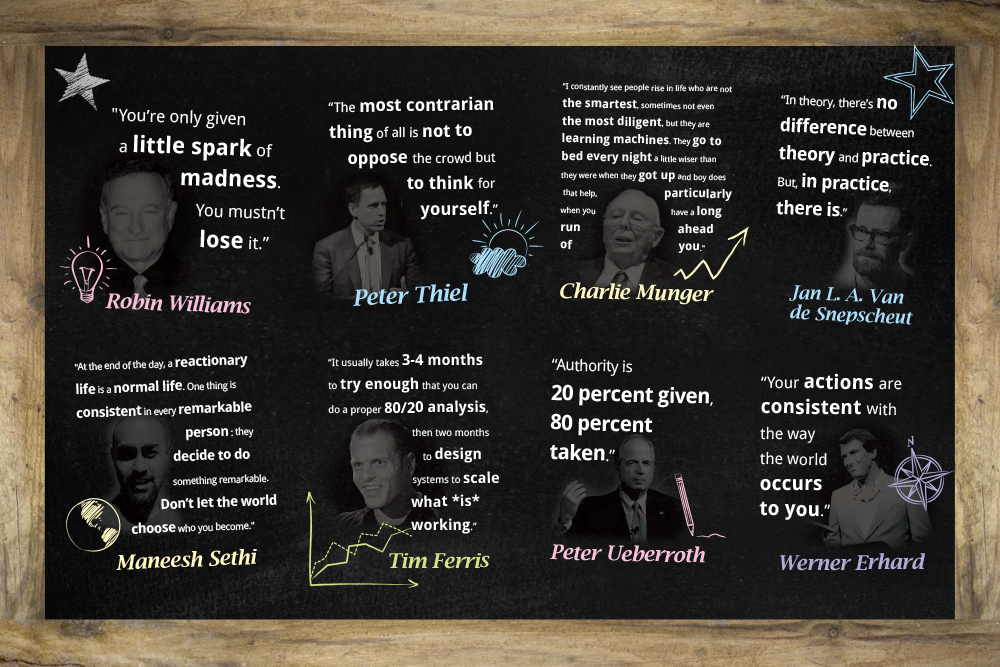 "You're only given
a little spark of
madness.
You mustn't
lose it."
Robin Williams
"The most contrarian
thing of all is not to
oppose the crowd but
to think for
yourself."
Peter Thiel
"I constantly see people rise in life who are not
the smartest, sometimes not even
the most diligent, but they are
learning machines. They go to
bed every night a little wiser than
they were when they got up and boy does
that help, particularly
when you have a long
run ahead
of you."
Charlie Munger
"In theory, there's no
difference between
theory and practice.
But, in practice,
there is."
Jan L. A. Van
de Snepscheut
"At the end of the day, a reactionary
life is a normal life. One thing is
consistent in every remarkable
person: they
decide to do
something remarkable.
Don't let the world
choose who you become."
Maneesh Sethi
"It usually takes 3-4 months
to try enough that you can
do a proper 80/20 analysis,
then two months
to design
systems to scale
what *is*
working."
Tim Ferris
"Authority is
20 percent given,
80 percent
taken."
Peter Ueberroth
"Your actions are
consistent with
the way
the world
occurs
to you."
N
Werner Erhard